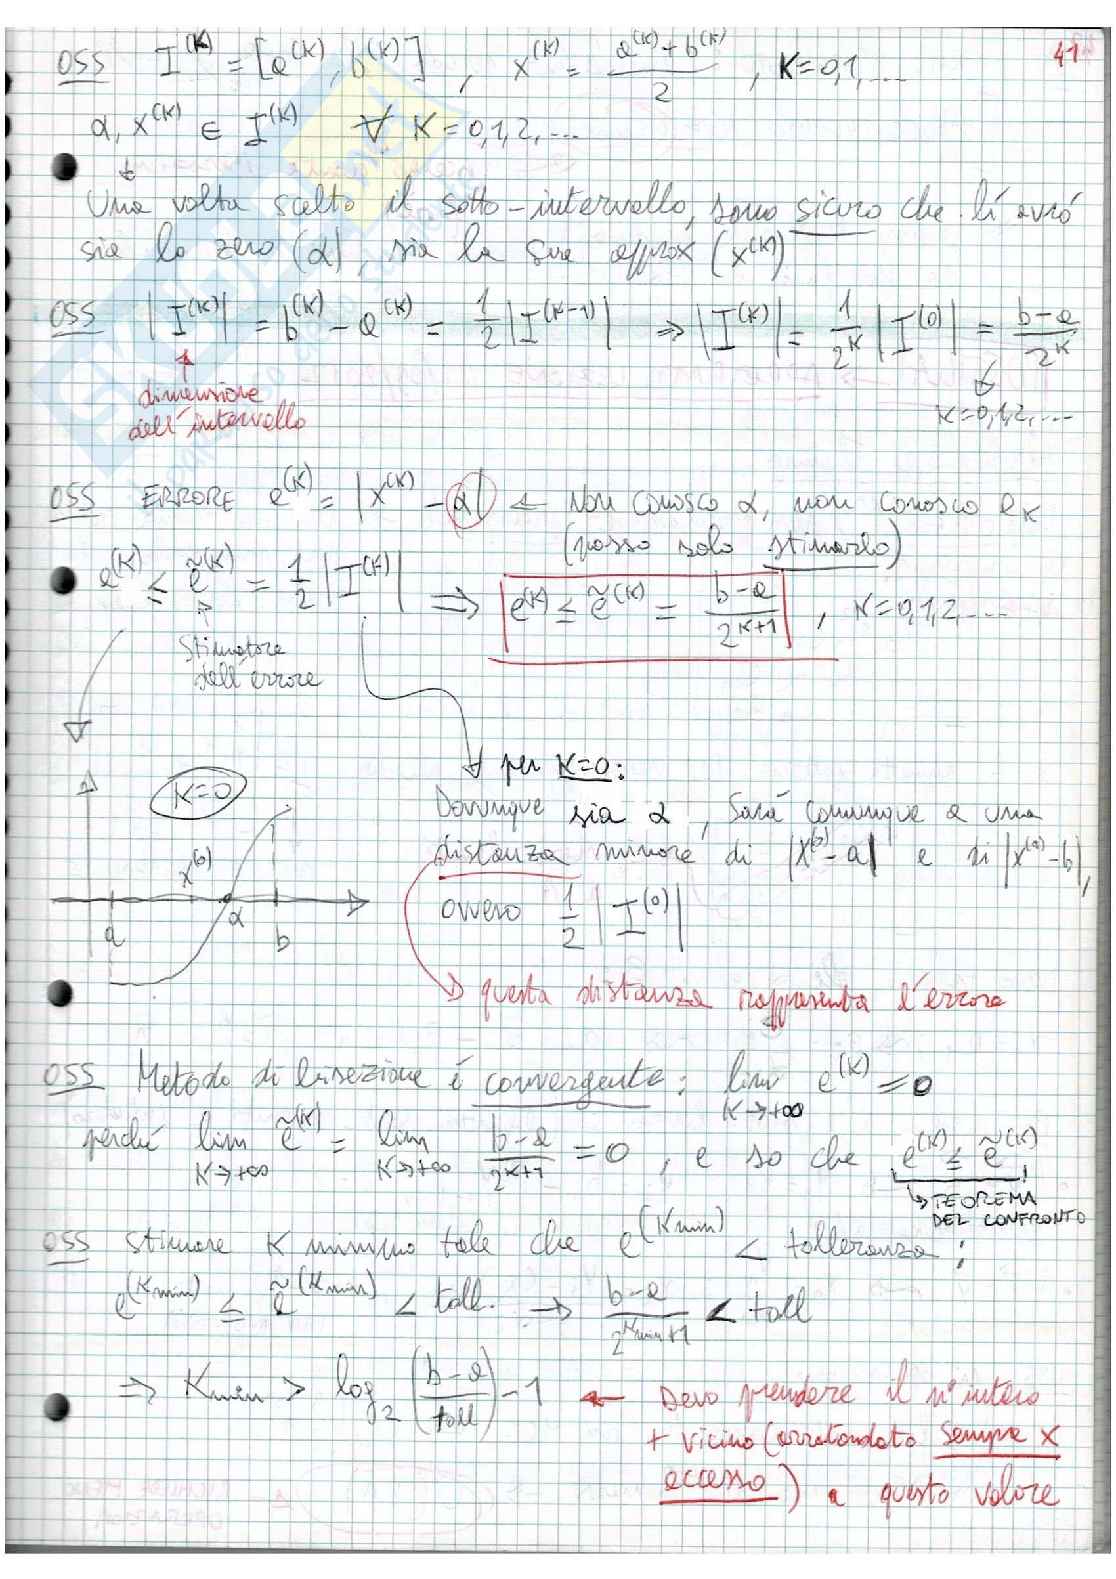 41
OSS I^(K) = [a^(K), b^(K)], x^(K) = (a^(K)+b^(K))/2, K=0,1,...
α, x^(K) ∈ I^(K) ∀ K=0,1,2,...
↓
Una volta scelto il sotto-intervallo, sono sicuro che lí avró
sia lo zero (α), sia la sua approx (x^(K))
OSS |I^(K)| = b^(K) - a^(K) = 1/2 |I^(K-1)| ⇒ |I^(K)| = 1/2^K |I^(0)| = (b-a)/2^K
K=0,1,2,...
dimensione
dell'intervallo
OSS ERRORE e^(K) = |x^(K) - α| ← Non conosco α, non conosco e_K
(posso solo stimarlo)
e^(K) ≤ ẽ^(K) = 1/2 |I^(K)| ⇒ e^(K) ≤ ẽ^(K) = (b-a)/2^(K+1), K=0,1,2,...
Stimatore
dell'errore
per K=0:
K=0
Dovunque sia α, sará comunque a una
distanza minore di |x^(0)-a| e di |x^(0)-b|,
x^(0)
ovvero 1/2 |I^(0)|
a α b
questa distanza rappresenta l'errore
OSS Metodo di bisezione é convergente: lim K→+∞ e^(K) = 0
perché lim K→+∞ ẽ^(K) = lim K→+∞ (b-a)/2^(K+1) = 0, e so che e^(K) ≤ ẽ^(K)
↳ TEOREMA
DEL CONFRONTO
OSS stimare K minimo tale che e^(Kmin) < tolleranza;
e^(Kmin) ≤ ẽ^(Kmin) < toll. → (b-a)/2^(Kmin+1) < toll
⇒ Kmin > log_2 ((b-a)/toll) - 1 ← Devo prendere il n° intero
+ vicino (arrotondato sempre x
eccesso) a questo valore